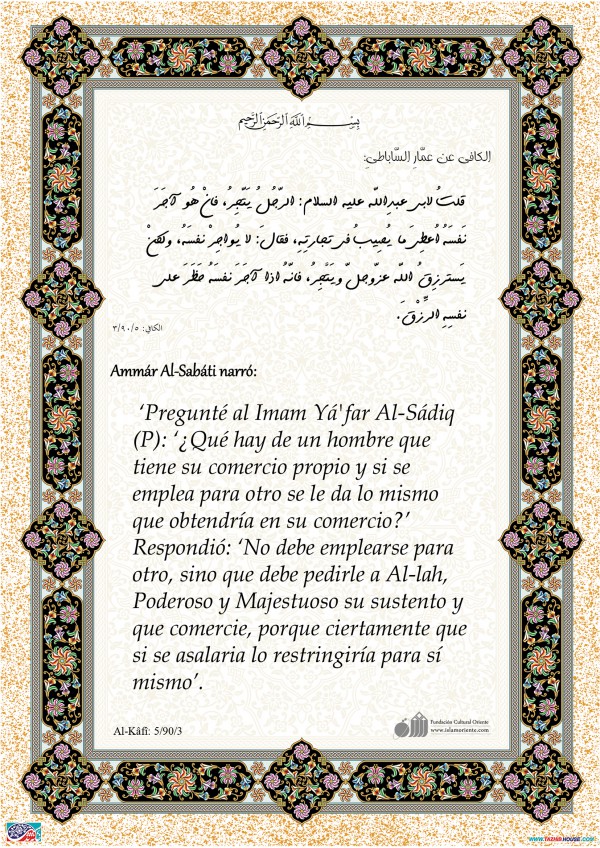 بِسْمِ اللَّهِ الرَّحْمَنِ الرَّحِيمِ
الكافی عن عمّارِ السّاباطیِ:
قلتُ لابی عبدِاللّه علیه السلام: الرّجُلُ یَتّجِرُ، فانْ هُو آجَرَ
نَفسَهُ اُعطِیَ ما یُصیبُ فی تجارتِهِ، فقالَ: لا یواجِرْ نفسَهُ، ولکنْ
یَسترزِقُ اللّه عزّوجلّ ویَتَّجِرُ، فانّهُ اذا آجَرَ نفسَهُ حَظَرَ علی
نفسِهِ الرِّزْقَ.
الکافي: ۳/۹۰/۵
Ammár Al-Sabáti narró:
‘Pregunté al Imam Yá'far Al-Sádiq
(P): ‘¿Qué hay de un hombre que
tiene su comercio propio y si se
emplea para otro se le da lo mismo
que obtendría en su comercio?’
Respondió: ‘No debe emplearse para
otro, sino que debe pedirle a Al-lah,
Poderoso y Majestuoso su sustento y
que comercie, porque ciertamente que
si se asalaria lo restringiría para sí
mismo’.
Al-Kâfi: 5/90/3
Fundación Cultural Oriente
www.islamoriente.com
WWW.TAZHIBHOUSE.COM